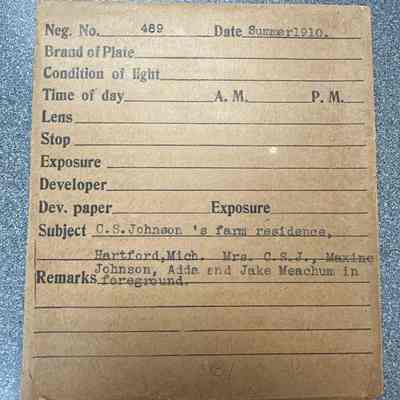 Neg. No. 489 Date Summer1910.
Brand of Plate
Condition of light
Time of day A. M. P. M.
Lens
Stop
Exposure
Developer
Dev. paper Exposure
Subject C.S.Johnson 's farm residence,
Hartford,Mich. Mrs. C.S.J., Maxine
Johnson, Adda and Jake Meachum in
Remarks foreground.